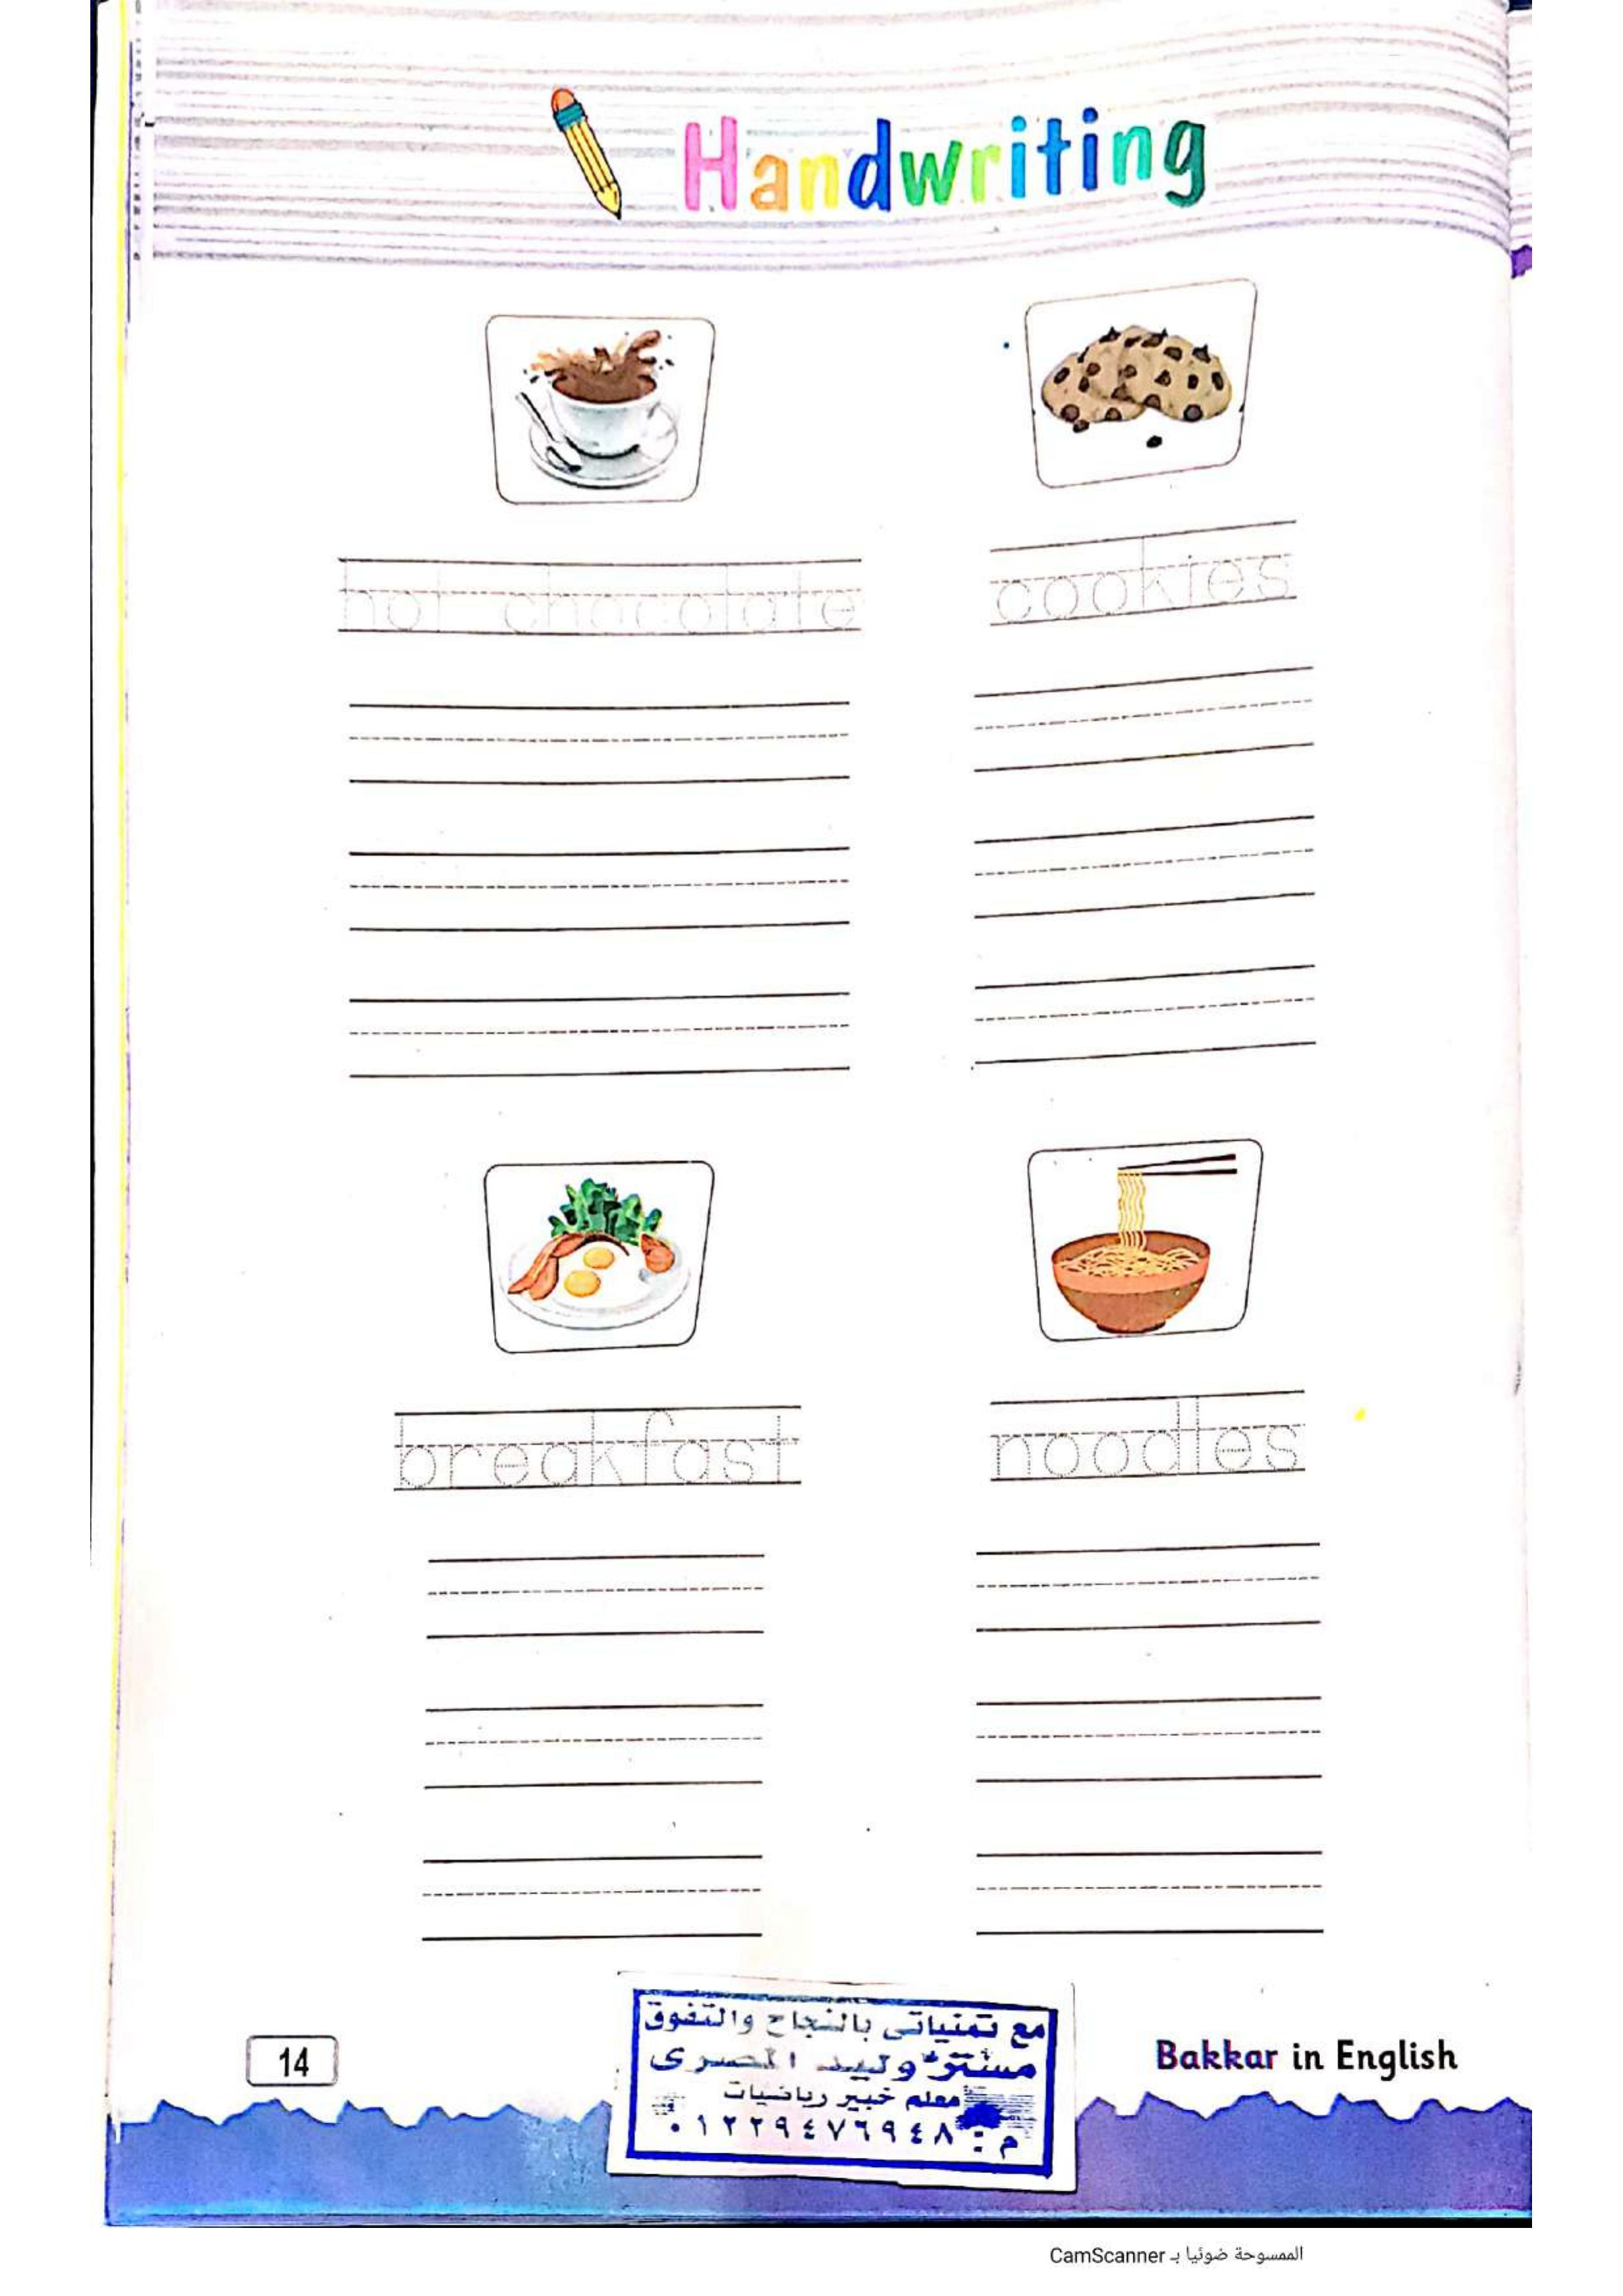 Handwriting
hot chocolate
cookies
breakfast
noodles
مع تمنياتى بالنجاح والتفوق
مستر وليد المصرى
معلم خبير رياضيات
م : ٠١٢٢٩٤٧٦٩٤٨
14
Bakkar in English
الممسوحة ضوئيا بـ CamScanner